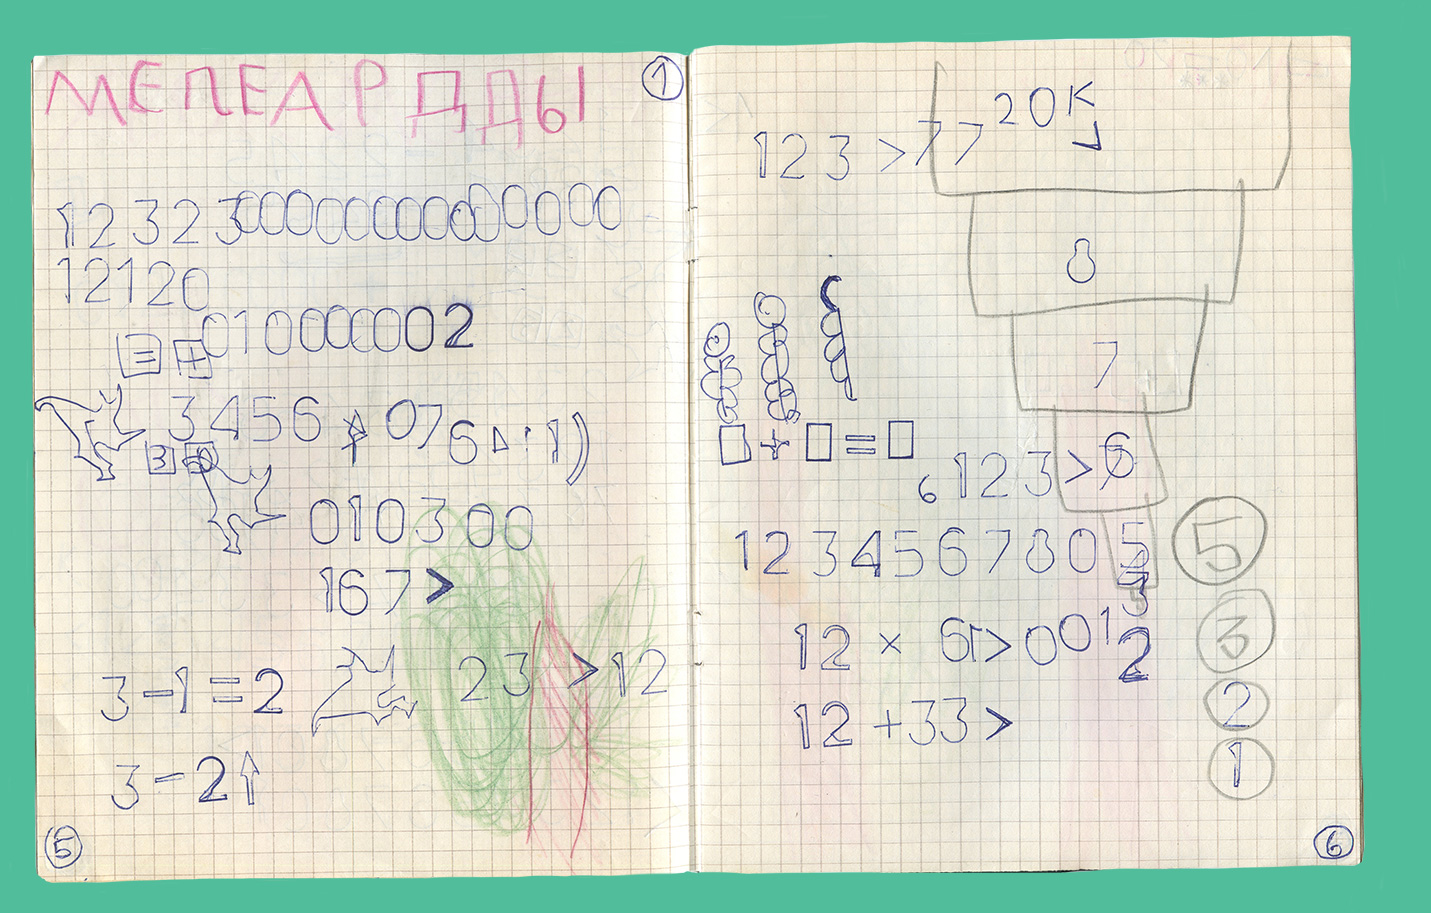 МЕПЕАРДДЫ
1
12323000000000000000
12120
= +
010000002
3456
076
3
010300
167>
3-1=2
23 >12
3-2↑
5
20K
123 >77
8
7
□+□=□
6 123>6
1234567805
5
3
3
12 × 61>0012
2
12 +33>
1
6